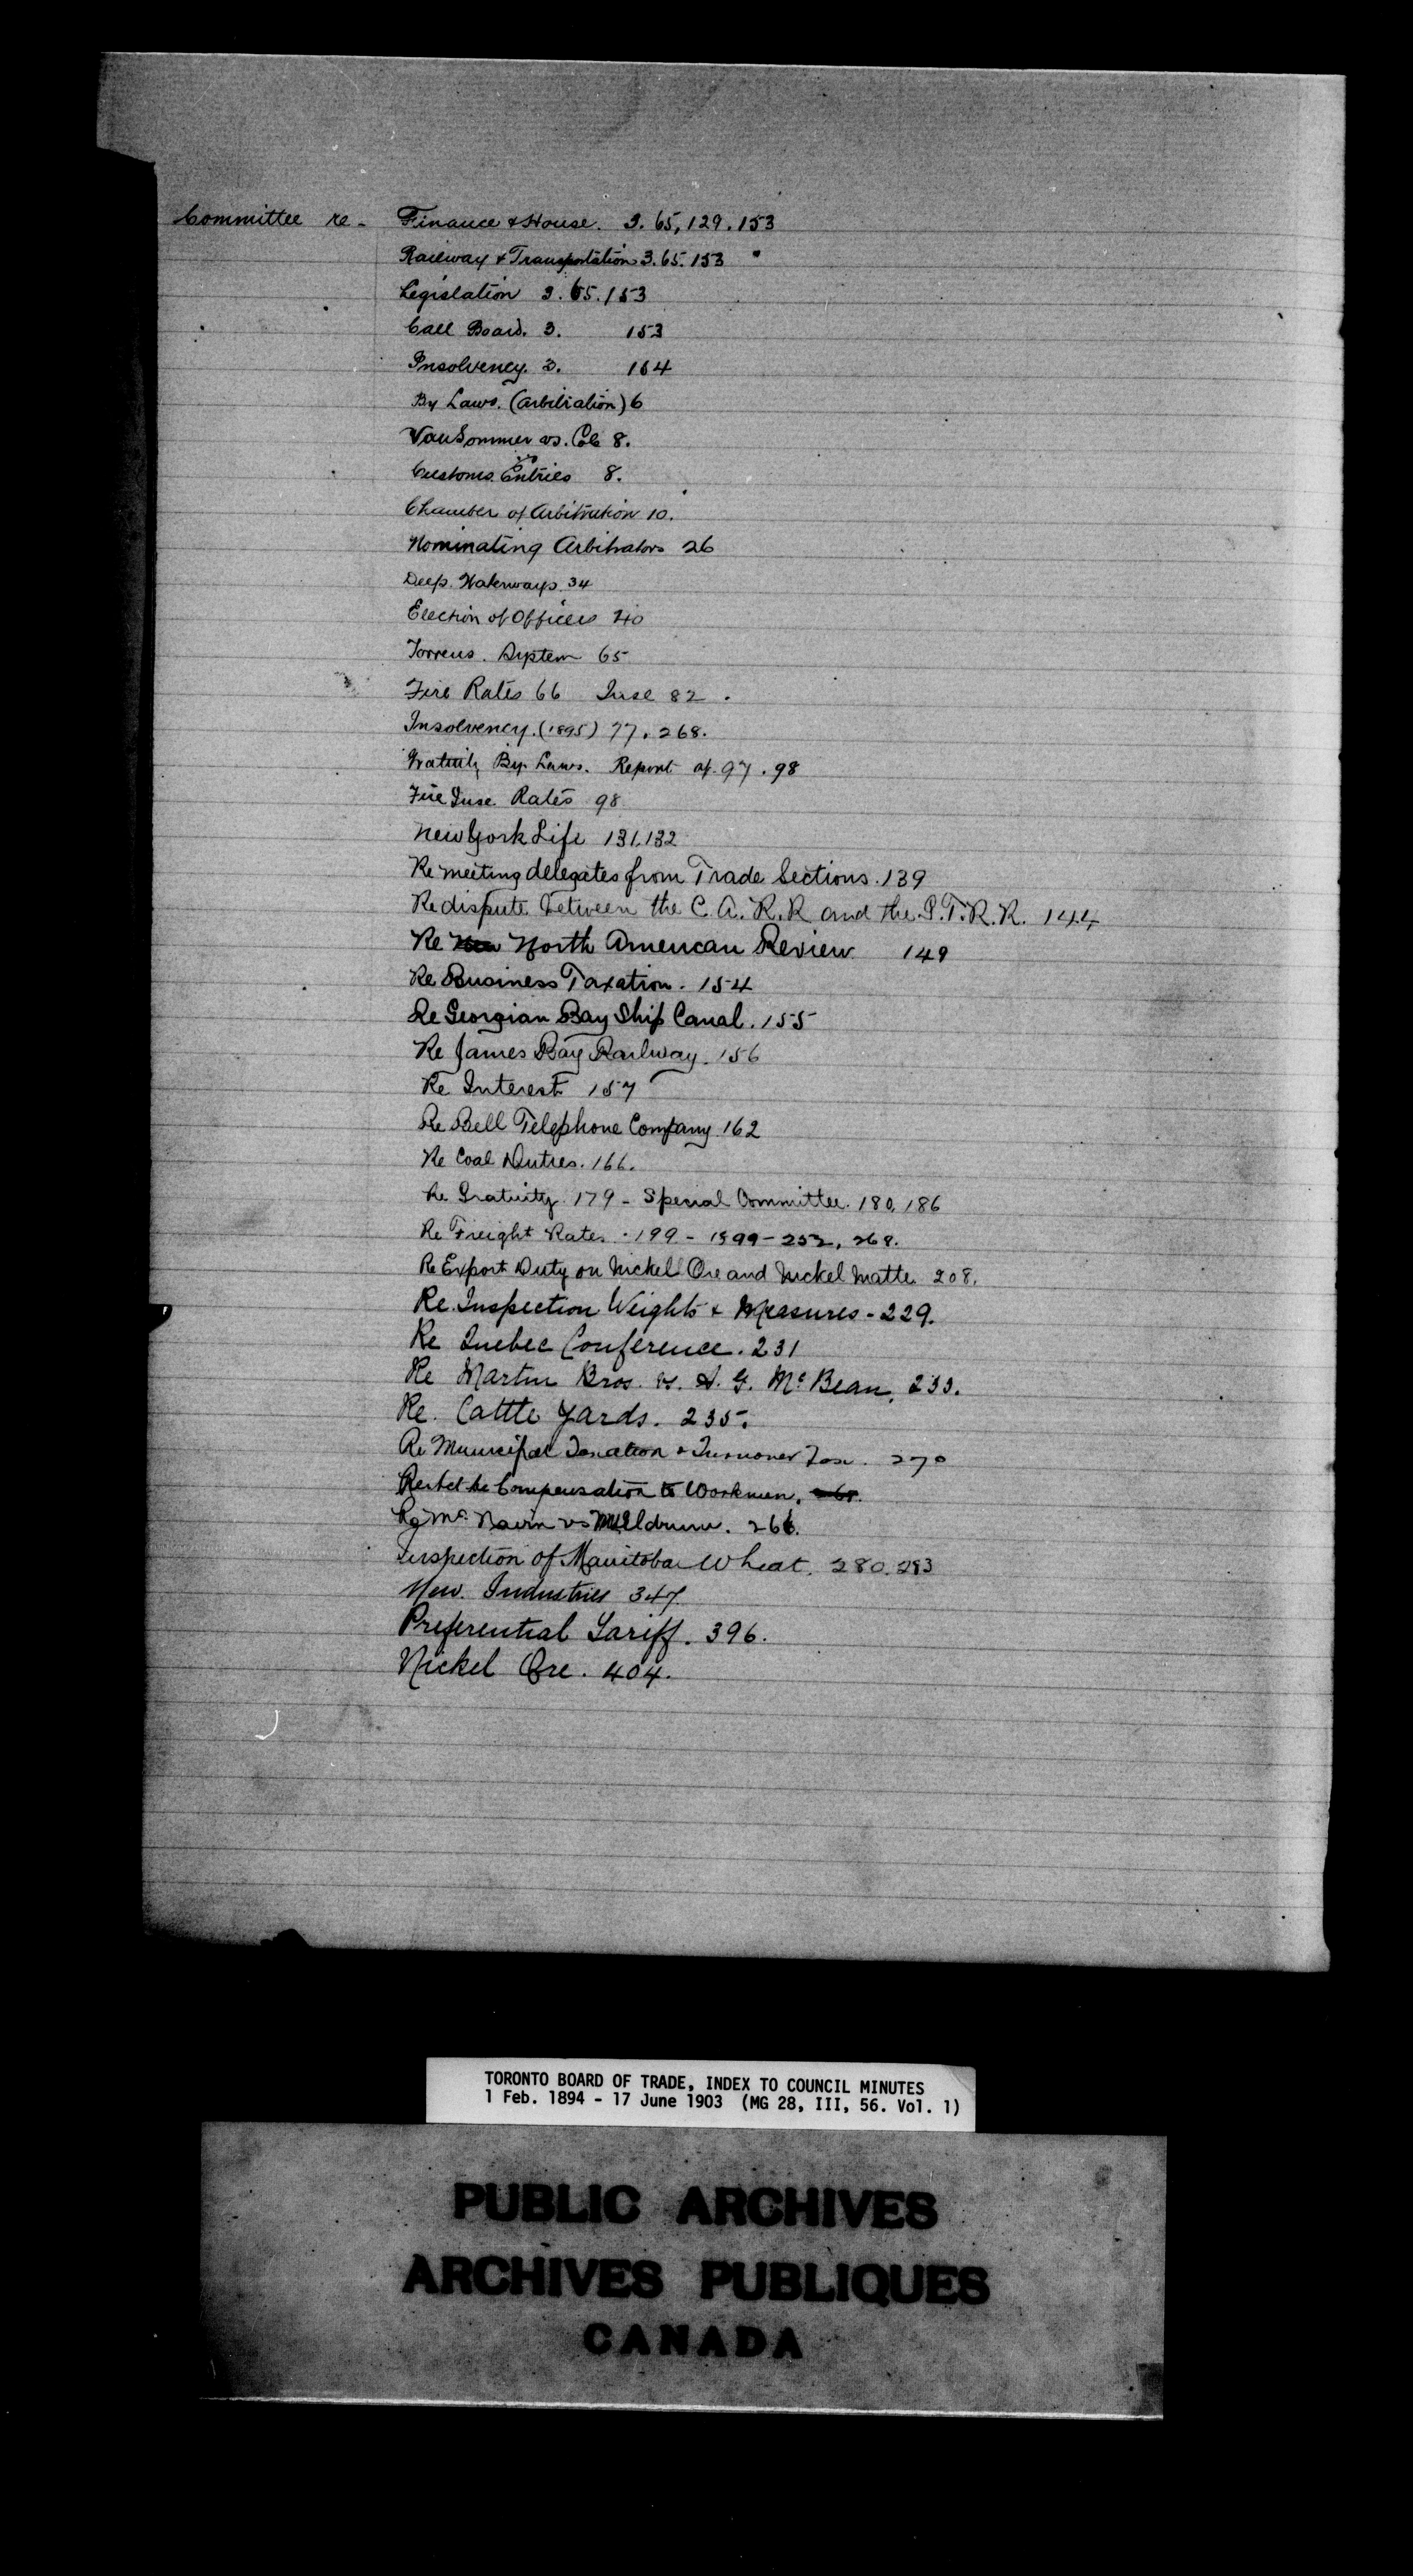 Committee re - Finance & House. 3. 65, 129. 153
Railway & Transportation 3. 65. 153
Legislation 3. 65. 153
Call Board. 3. 153
Insolvency. 3. 164
By Laws. (Arbitration) 6
VanSommer vs. Cole 8.
Customs. Entries 8.
Chamber of Arbitration 10.
Nominating Arbitrators 26
Deep. Waterways. 34
Election of Officers 40
Torrens. System 65
Fire Rates 66 Insce 82.
Insolvency. (1895) 77. 268.
Gratuity By-Laws. Report of. 97. 98
Fire Insce. Rates 98
New York Life 131. 132
Re meeting delegates from Trade Sections. 139
Re dispute between the C. A. R. R and the G. T. R. R. 144
Re North American Review 149
Re Business Taxation. 154
Re Georgian Bay Ship Canal. 155
Re James Bay Railway. 156
Re Interest 157
Re Bell Telephone Company 162
Re Coal Duties. 166.
Re Gratuity 179 - Special Committee. 180, 186
Re Freight Rates. 199 - 1899 - 252, 268.
Re Export Duty on Nickel Ore and Nickel Matte 208.
Re. Inspection Weights & Measures - 229.
Re Quebec Conference. 231
Re Martin Bros. vs. A. G. McBean, 233.
Re. Cattle Yards. 235.
Re Municipal Taxation & Turnover Tax. 270
Re Act re Compensation to Workmen.
Re McNairn vs Muldrum. 266.
Inspection of Manitoba Wheat. 280. 283
New. Industries 347
Preferential Tariff. 396.
Nickel Ore. 404.
TORONTO BOARD OF TRADE, INDEX TO COUNCIL MINUTES
1 Feb. 1894 - 17 June 1903 (MG 28, III, 56. Vol. 1)
PUBLIC ARCHIVES
ARCHIVES PUBLIQUES
CANADA